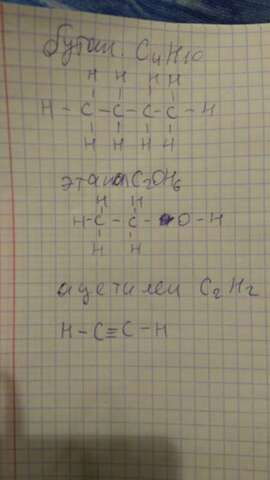 бутан. C4H10
H H H H
H - C - C - C - C - H
H H H H
этанол C2OH6
H H
H - C - C - O - H
H H
ацетилен C2H2
H - C ≡ C - H